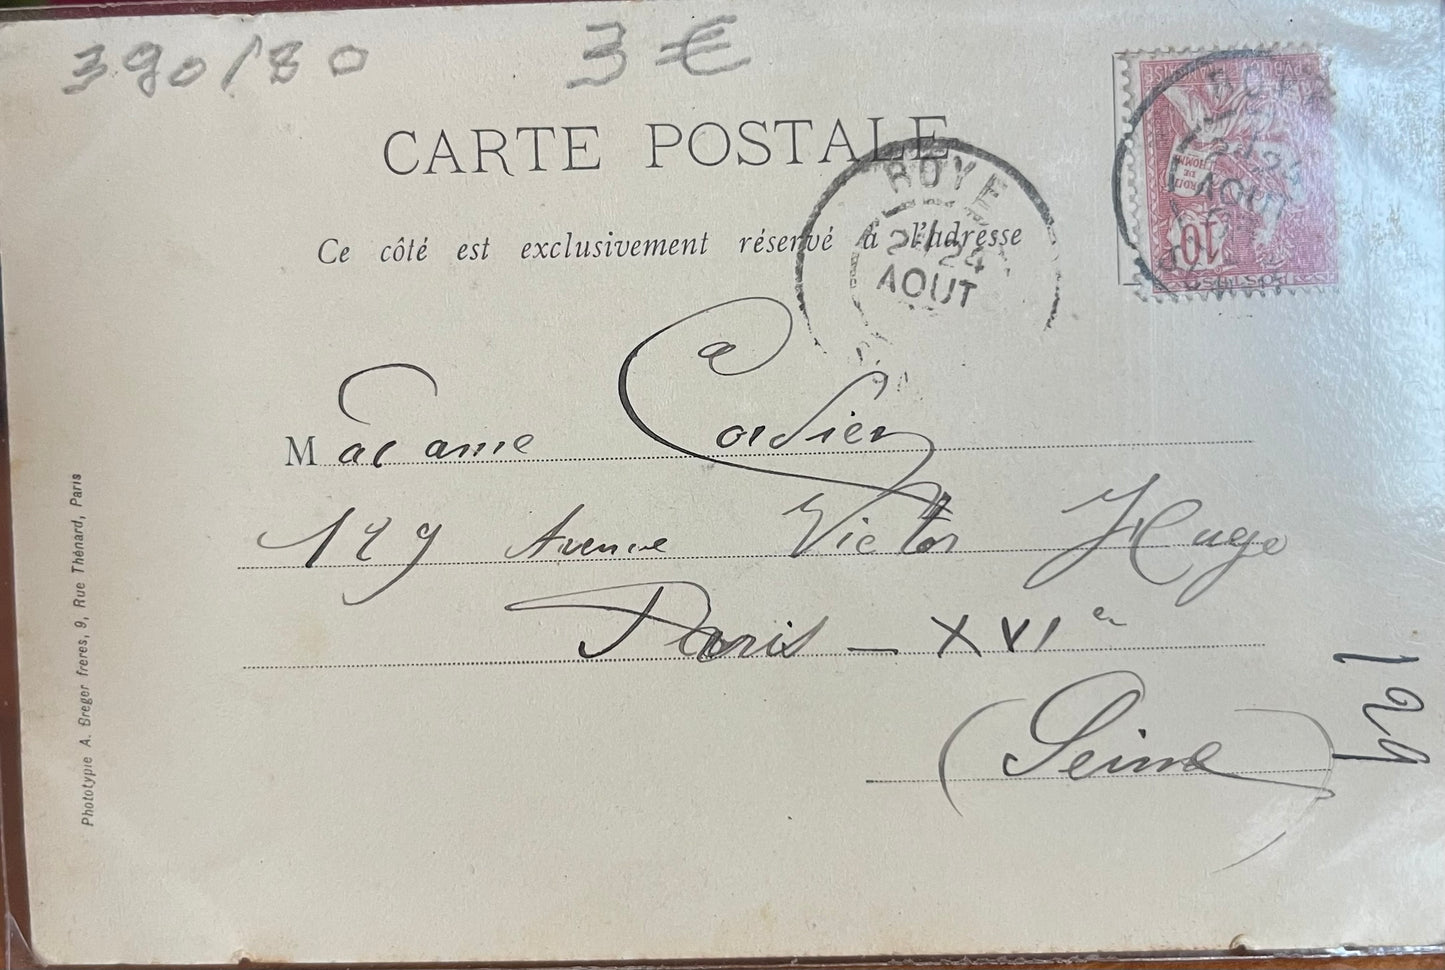 390/80 3 €
CARTE POSTALE
Ce côté est exclusivement réservé à l'adresse
ROYE
24
AOUT
ROYE
24
AOUT
10
DROITS
DE
L'HOMME
Madame Cordier
129 Avenue Victor Hugo
Paris - XVIe
(Seine)
129
Phototypie A. Breger freres, 9, Rue Thénard, Paris